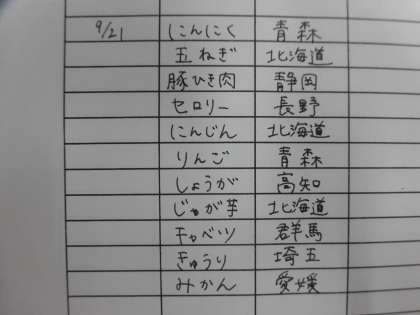 9/21 にんにく 青森
玉ねぎ 北海道
豚ひき肉 静岡
セロリー 長野
にんじん 北海道
りんご 青森
しょうが 高知
じゃが芋 北海道
キャベツ 群馬
きゅうり 埼玉
みかん 愛媛